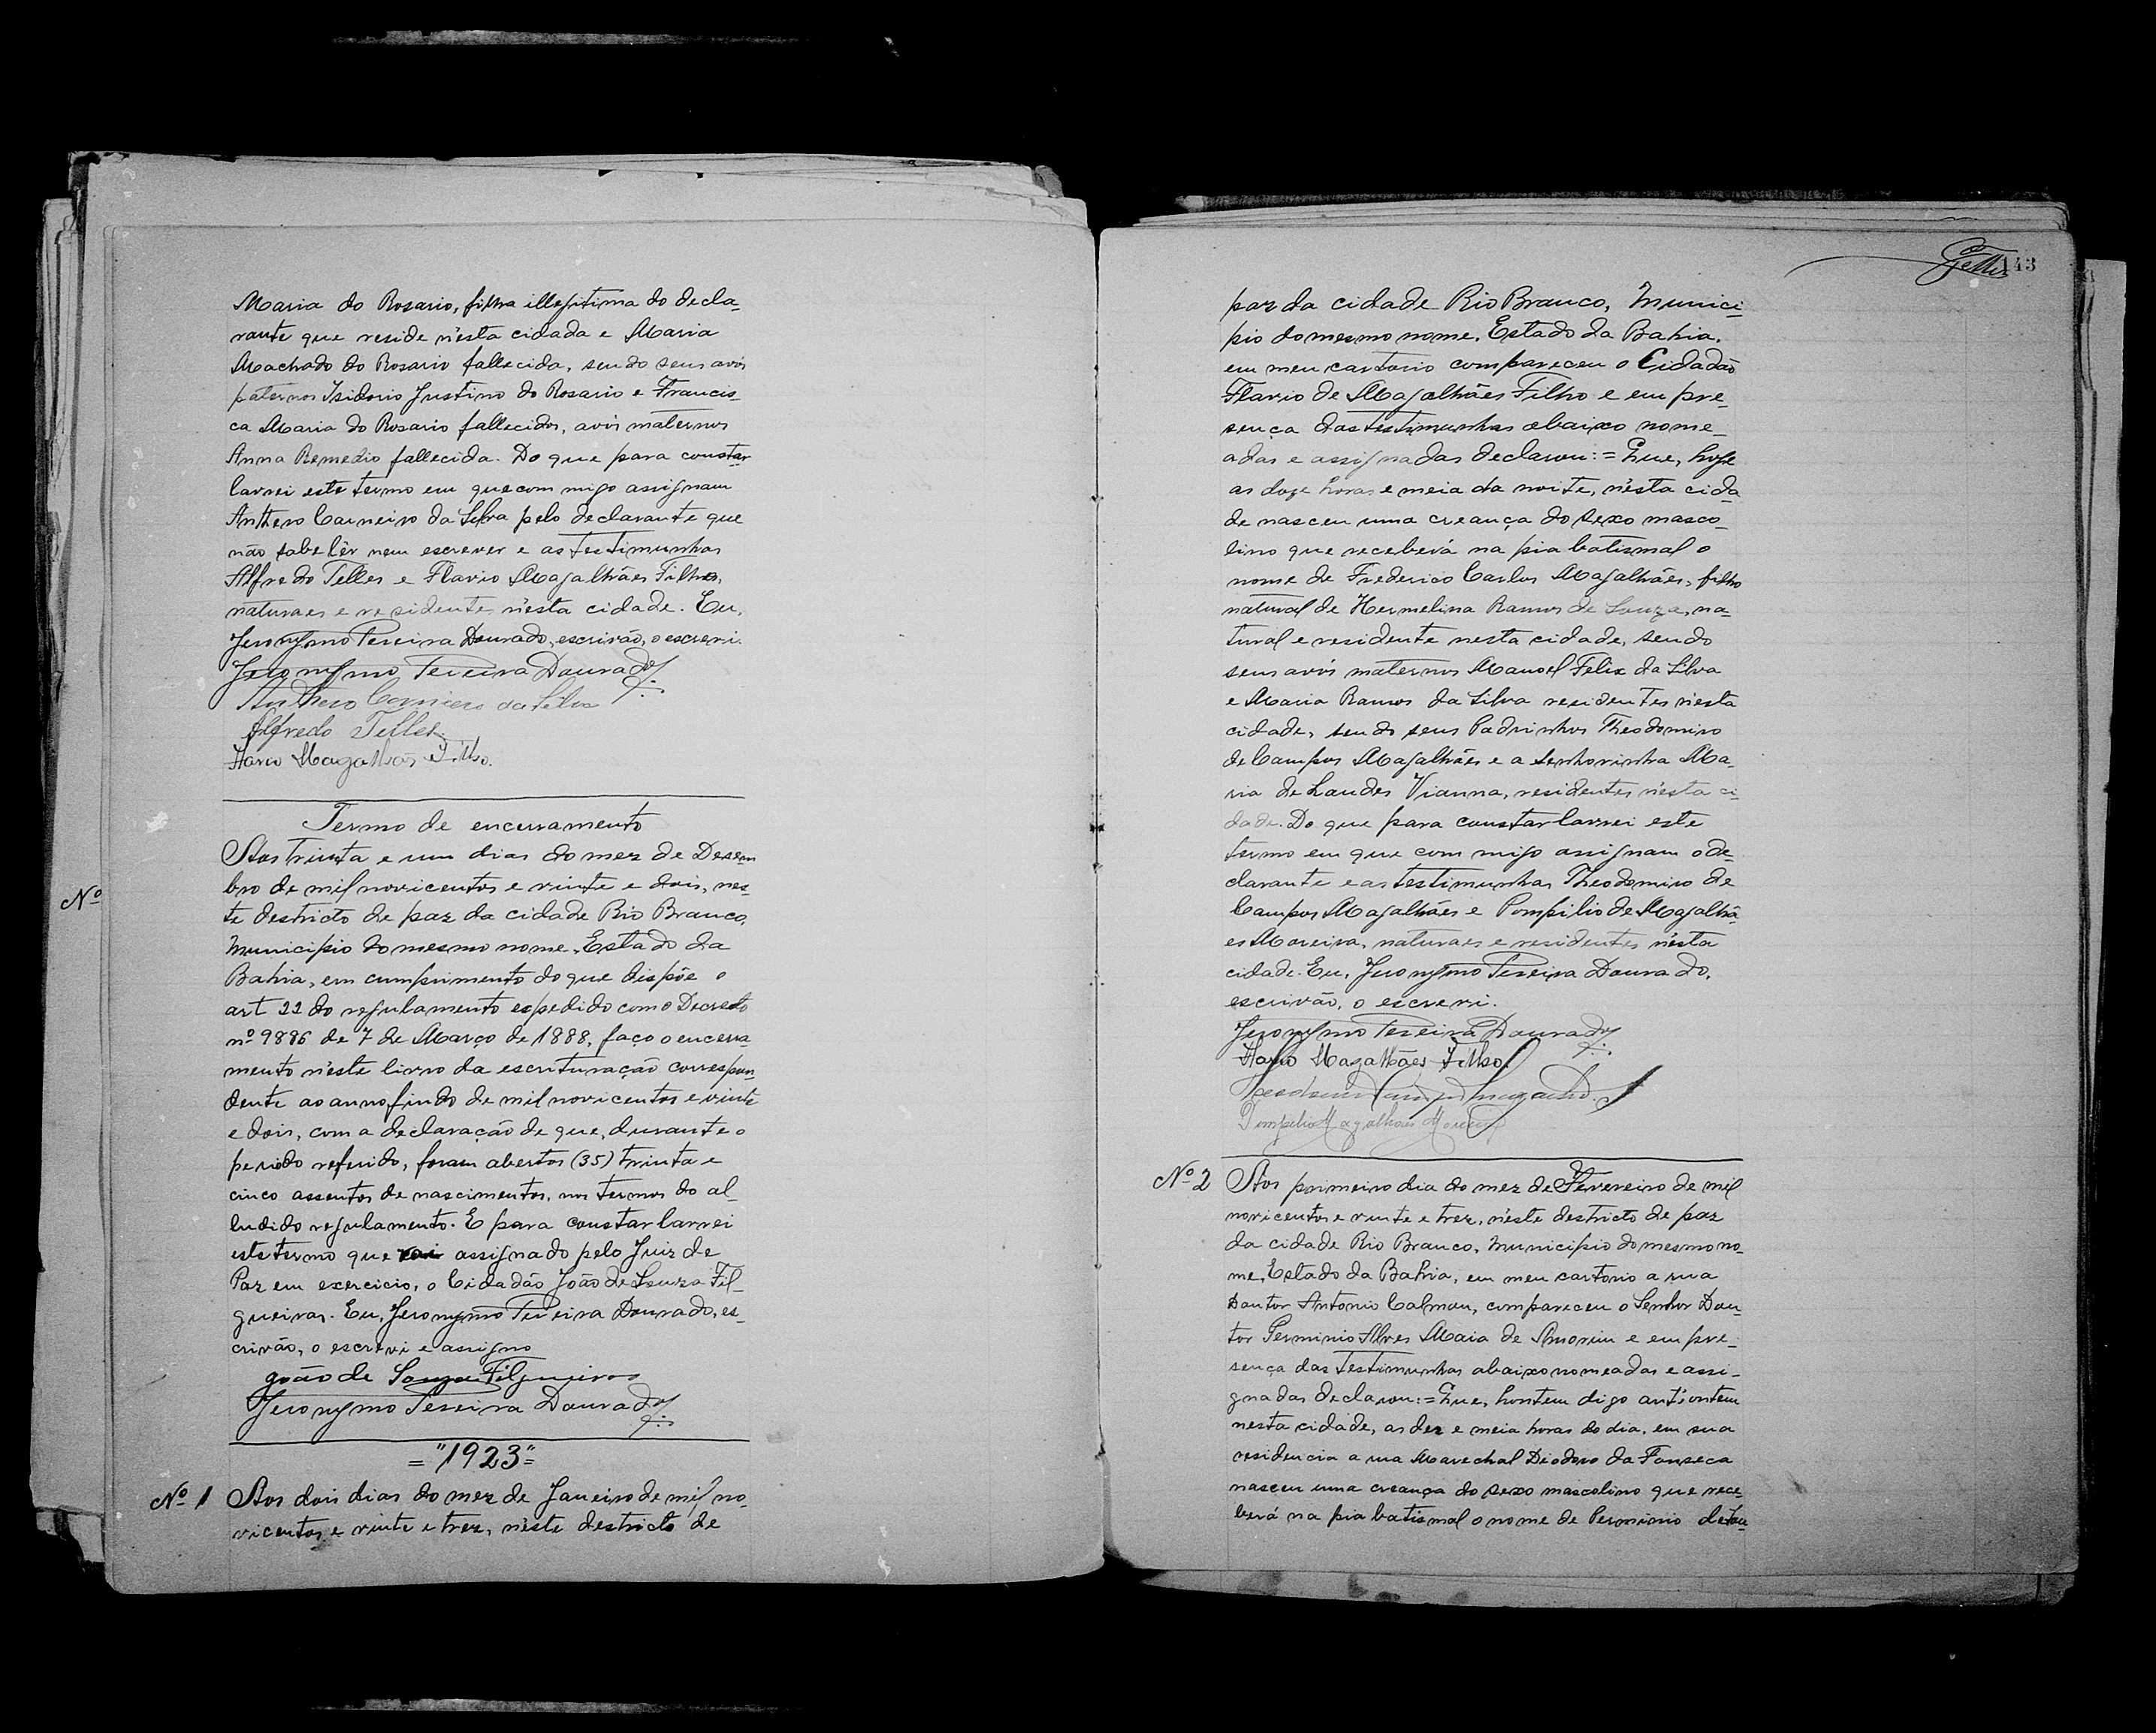 Maria do Rosario, filha illegitima do decla-
rante que reside n'esta cidada e Maria
Machado do Rosario fallecida, sendo seus avós
paternos Isidorio Justino do Rosario e Francis-
ca Maria do Rosario fallecidos, avós maternos
Anna Remedio fallecida. Do que para constar
lavrei este termo em que com migo assignam
Anthero Carneiro da Silva pelo declarante que
não sabe lêr nem escrever e as testimunhas
Alfredo Telles e Flavio Magalhães Filho,
naturaes e residentes n'esta cidade. Eu,
Jeronymo Pereira Dourado, escrivão, o escrevi.
Jeronymo Pereira Dourado
Anthero Carneiro da Silva
Alfredo Telles
Flavio Magalhães Filho.
Termo de encerramento
Aos trinta e um dias do mez de Dezem
bro de mil novicentos e vinte e dois, nes-
te destricto de paz da cidade Rio Branco,
Municipio do mesmo nome, Estado da
Bahia, em cumprimento do que dispõe o
art 22 do regulamento espedido com o Decreto
nº 9886 de 7 de Março de 1888, faço o encerra-
mento n'este livro da escrituração correspon-
dente ao anno findo de mil novicentos e vinte
e dois, com a declaração de que, durante o
periodo referido, foram abertos (35) trinta e
cinco assentos de nascimentos, nos termos do al-
ludido regulamento. E para constar lavrei
este termo que vai assignado pelo Juiz de
Paz em exercicio, o Cidadão João de Souza Fil-
gueiras. Eu, Jeronymo Pereira Dourado, es-
crivão, o escrevi e assigno
João de Souza Filgueiras
Jeronymo Pereira Dourado
= "1923" =
Nº
Nº 1 Aos dois dias do mez de Janeiro de mil no-
vicentos e vinte e trez, n'este destricto de
143
paz da cidade Rio Branco, Munici-
pio do mesmo nome, Estado da Bahia,
em meu cartorio compareceu o Cidadão
Flavio de Magalhães Filho e em pre-
sença das testimunhas abaixo nome-
adas e assignadas declarou:= Que, hoje
as doze horas e meia da noite, n'esta cida
de nasceu uma creança do sexo masco-
lino que receberá na pia batismal o
nome de Frederico Carlos Magalhães, filho
natural de Hermelina Ramos de Souza, na-
tural e residente nesta cidade, sendo
seus avós maternos Manoel Felix da Silva
e Maria Ramos da Silva residentes n'esta
cidade, sendo seus Padrinhos Theodomiro
de Campos Magalhães e a Senhorinha Ma-
ria de Laudes Vianna, residentes n'esta ci-
dade. Do que para constar lavrei este
termo em que com migo assignam o de-
clarante e as testimunhas Theodomiro de
Campos Magalhães e Pompilio de Magalhã
es Moreira, naturaes e residentes n'esta
cidade. Eu, Jeronymo Pereira Dourado,
escrivão, o escrevi.
Jeronymo Pereira Dourado
Flavio Magalhães Filho
Pompilio Magalhães Moreira
Nº 2 Aos primeiro dia do mez de Fevereiro de mil
novicentos e vinte e trez, n'este destricto de paz
da cidade Rio Branco, Municipio do mesmo no-
me, Estado da Bahia, em meu cartorio a rua
Doutor Antonio Calmon, compareceu o Senhor Dou-
tor Perminio Alves Maia de Amorim e em pre-
sença das testimunhas abaixo nomeadas e assi-
gnadas declarou:= Que, hontem digo anti'ontem
nesta cidade, as dez e meia horas do dia, em sua
residencia a rua Marechal Diodoro da Fonseca
nasceu uma creança do sexo mascolino que rece-
berá na pia batismal o nome de Perminio de Sou-